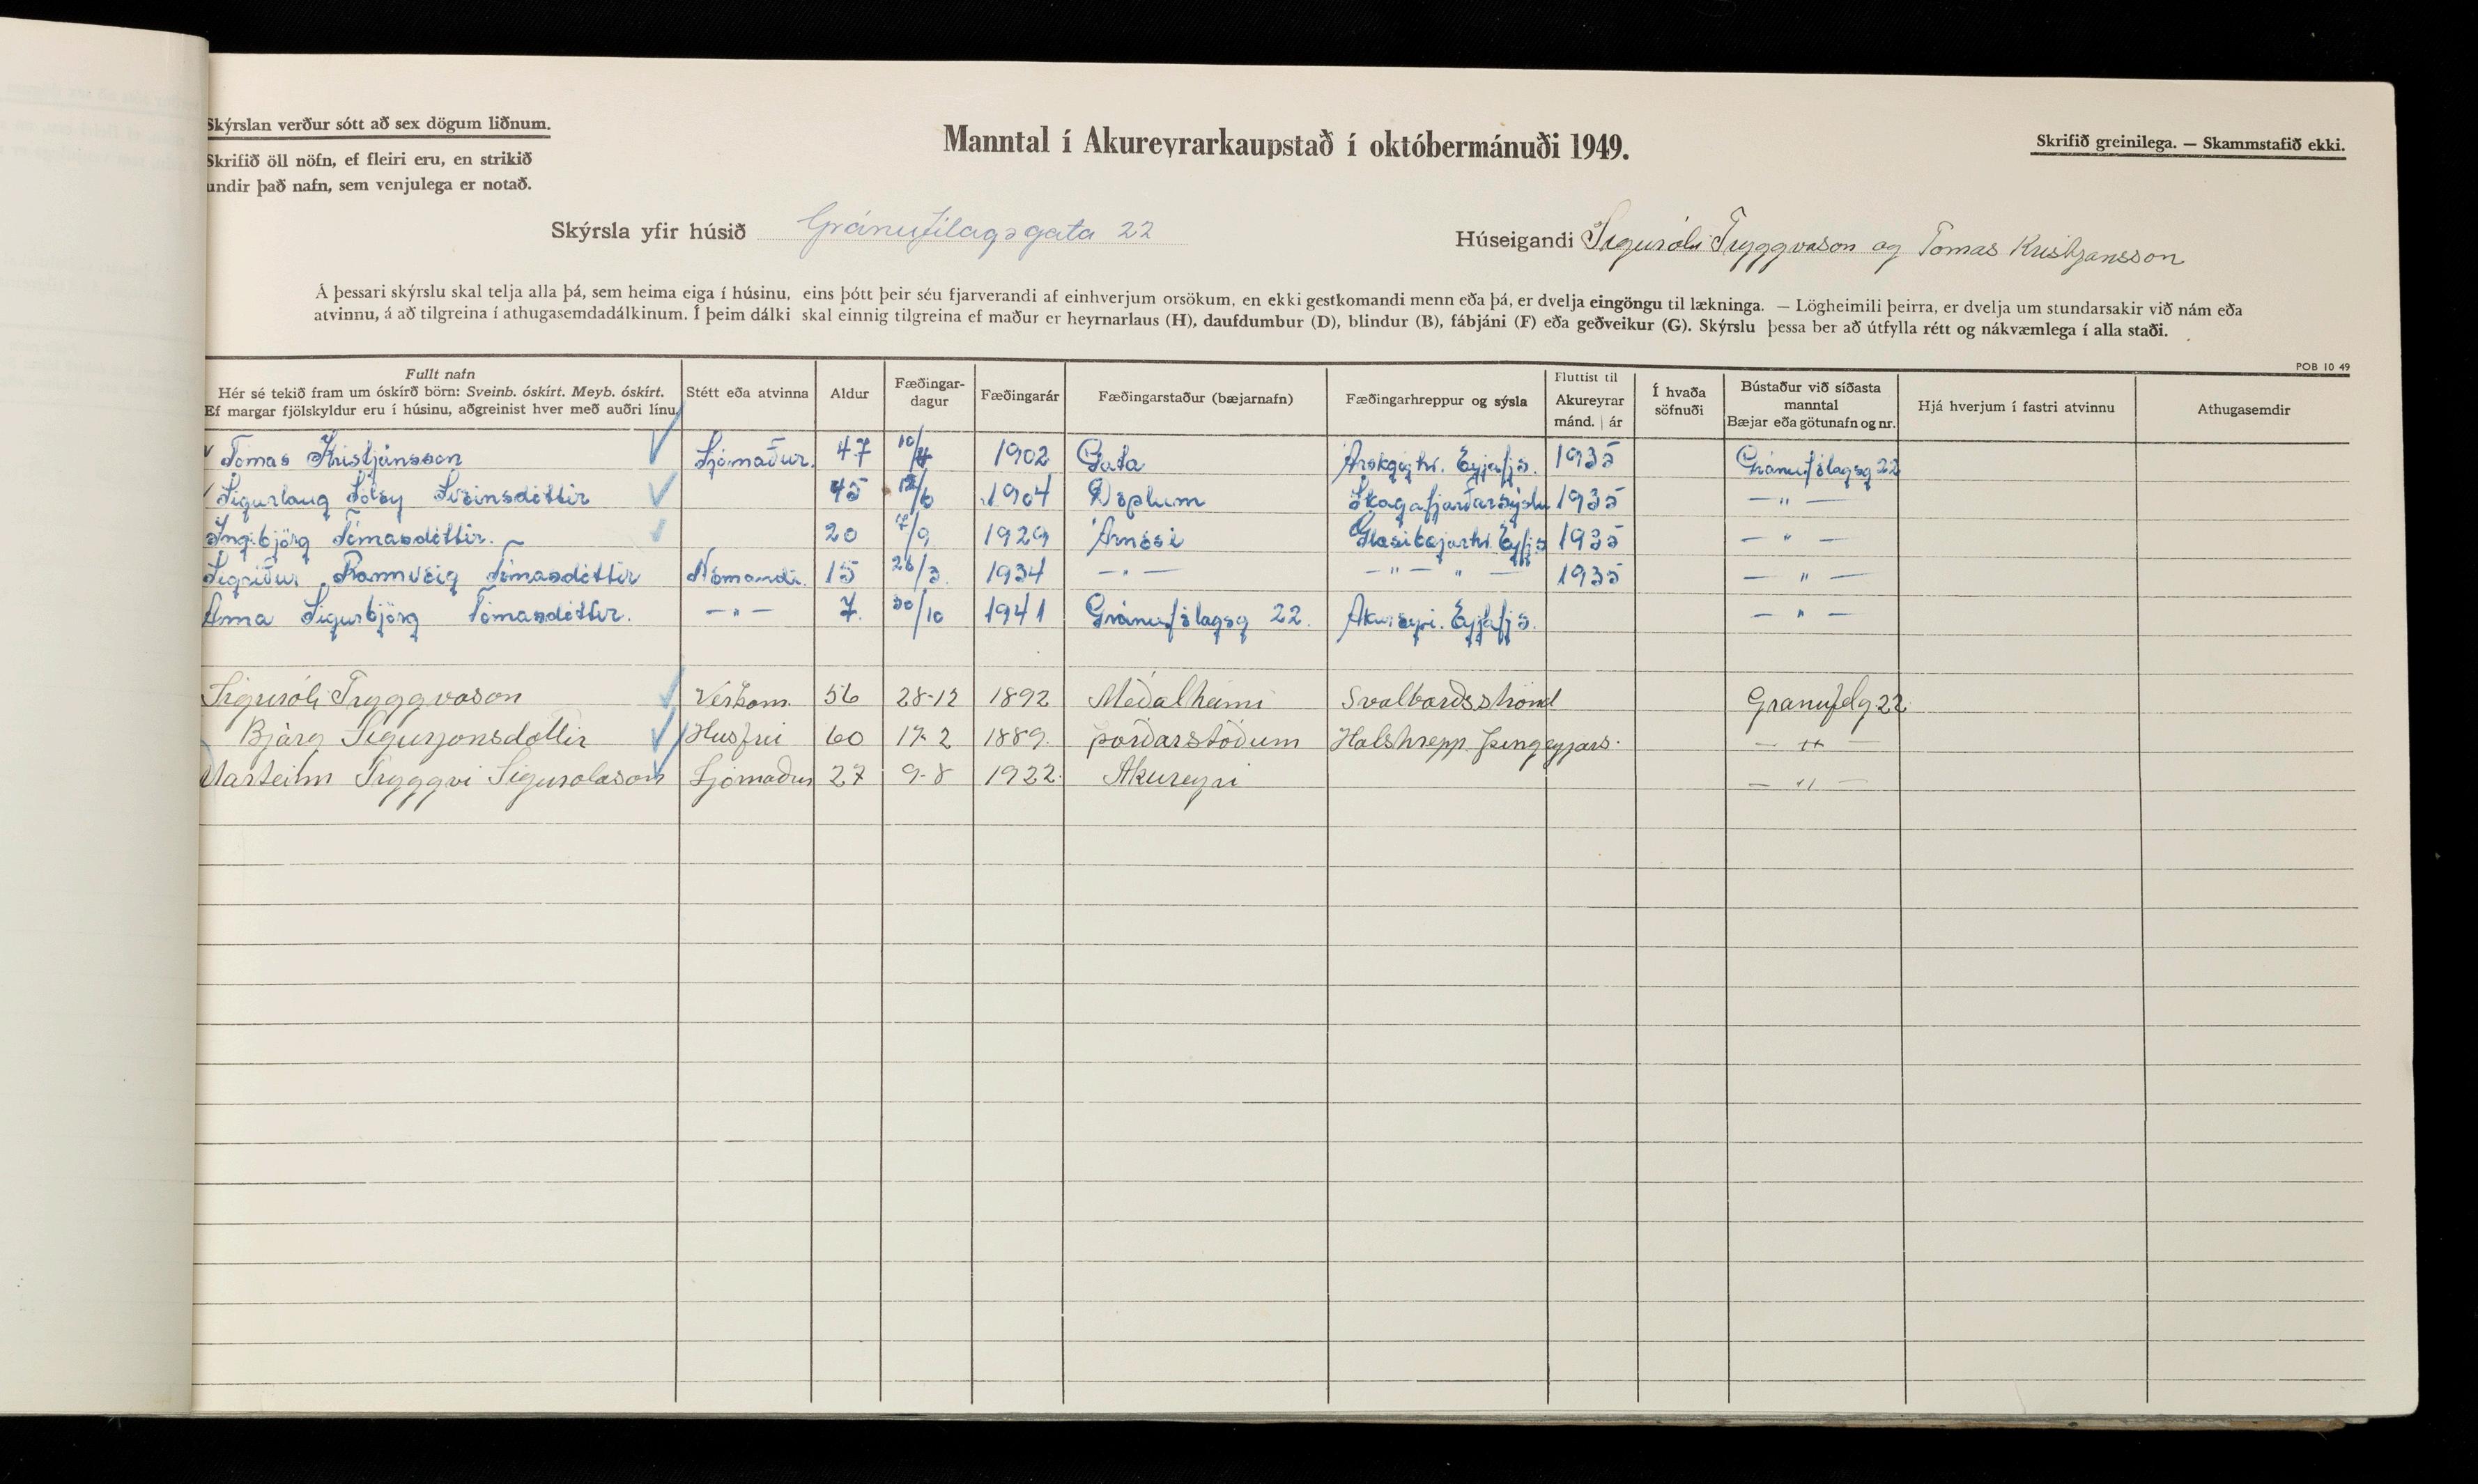 Skýrslan verður sótt að sex dögum liðnum.
Skrifið öll nöfn, ef fleiri eru, en strikið
undir það nafn, sem venjulega er notað.
Manntal í Akureyrarkaupstað í októbermánuði 1949.
Skrifið greinilega. — Skammstafið ekki.
Skýrsla yfir húsið Gránufélagsgata 22
Húseigandi Siguróli Tryggvason og Tomas Kristjansson
Á þessari skýrslu skal telja alla þá, sem heima eiga í húsinu, eins þótt þeir séu fjarverandi af einhverjum orsökum, en ekki gestkomandi menn eða þá, er dvelja eingöngu til lækninga. — Lögheimili þeirra, er dvelja um stundarsakir við nám eða
atvinnu, á að tilgreina í athugasemdadálkinum. Í þeim dálki skal einnig tilgreina ef maður er heyrnarlaus (H), daufdumbur (D), blindur (B), fábjáni (F) eða geðveikur (G). Skýrslu þessa ber að útfylla rétt og nákvæmlega í alla staði.
POB 10 49
Fullt nafn
Hér sé tekið fram um óskírð börn: Sveinb. óskírt. Meyb. óskírt.
Ef margar fjölskyldur eru í húsinu, aðgreinist hver með auðri línu.
Stétt eða atvinna
Aldur
Fæðingar-
dagur
Fæðingarár
Fæðingarstaður (bæjarnafn)
Fæðingarhreppur og sýsla
Fluttist til
Akureyrar
mánd. | ár
Í hvaða
söfnuði
Bústaður við síðasta
manntal
Bæjar eða götunafn og nr.
Hjá hverjum í fastri atvinnu
Athugasemdir
Tómas Kristjánsson Sjómaður. 47 10/4 1902 Gata Árskógshr. Eyjafjs. 1935 Gránufélagsg 22
Sigurlaug Sóley Sveinsdóttir 45 /6 1904 Skagafjarðarsýslu 1935 — " —
Ingibjörg Tómasdóttir. 20 /9 1929 Árnesi Glæsibæjarhr. Eyjfs 1935 — " —
Sigríður Rannveig Tómasdóttir Nemandi. 15 26/3. 1934 — " — — " — " — 1935 — " —
Anna Sigurbjörg Tómasdóttir. — " — 7. 30/10 1941 Gránufélagsg 22. Akureyri. Eyjafjs. — " —
Siguróli Tryggvason Verkam. 56 28-12 1892 Meðalheimi Svalbarðsströnd Granufelg 22
Bjárg Sigurjonsdottir Husfrú 60 17-2 1889. Þorðarstöðum Halshrepp Þingeyjars. — " —
Marteinn Tryggvi Sigurolason Sjómaður 27 9-8 1922. Akureyri — " —